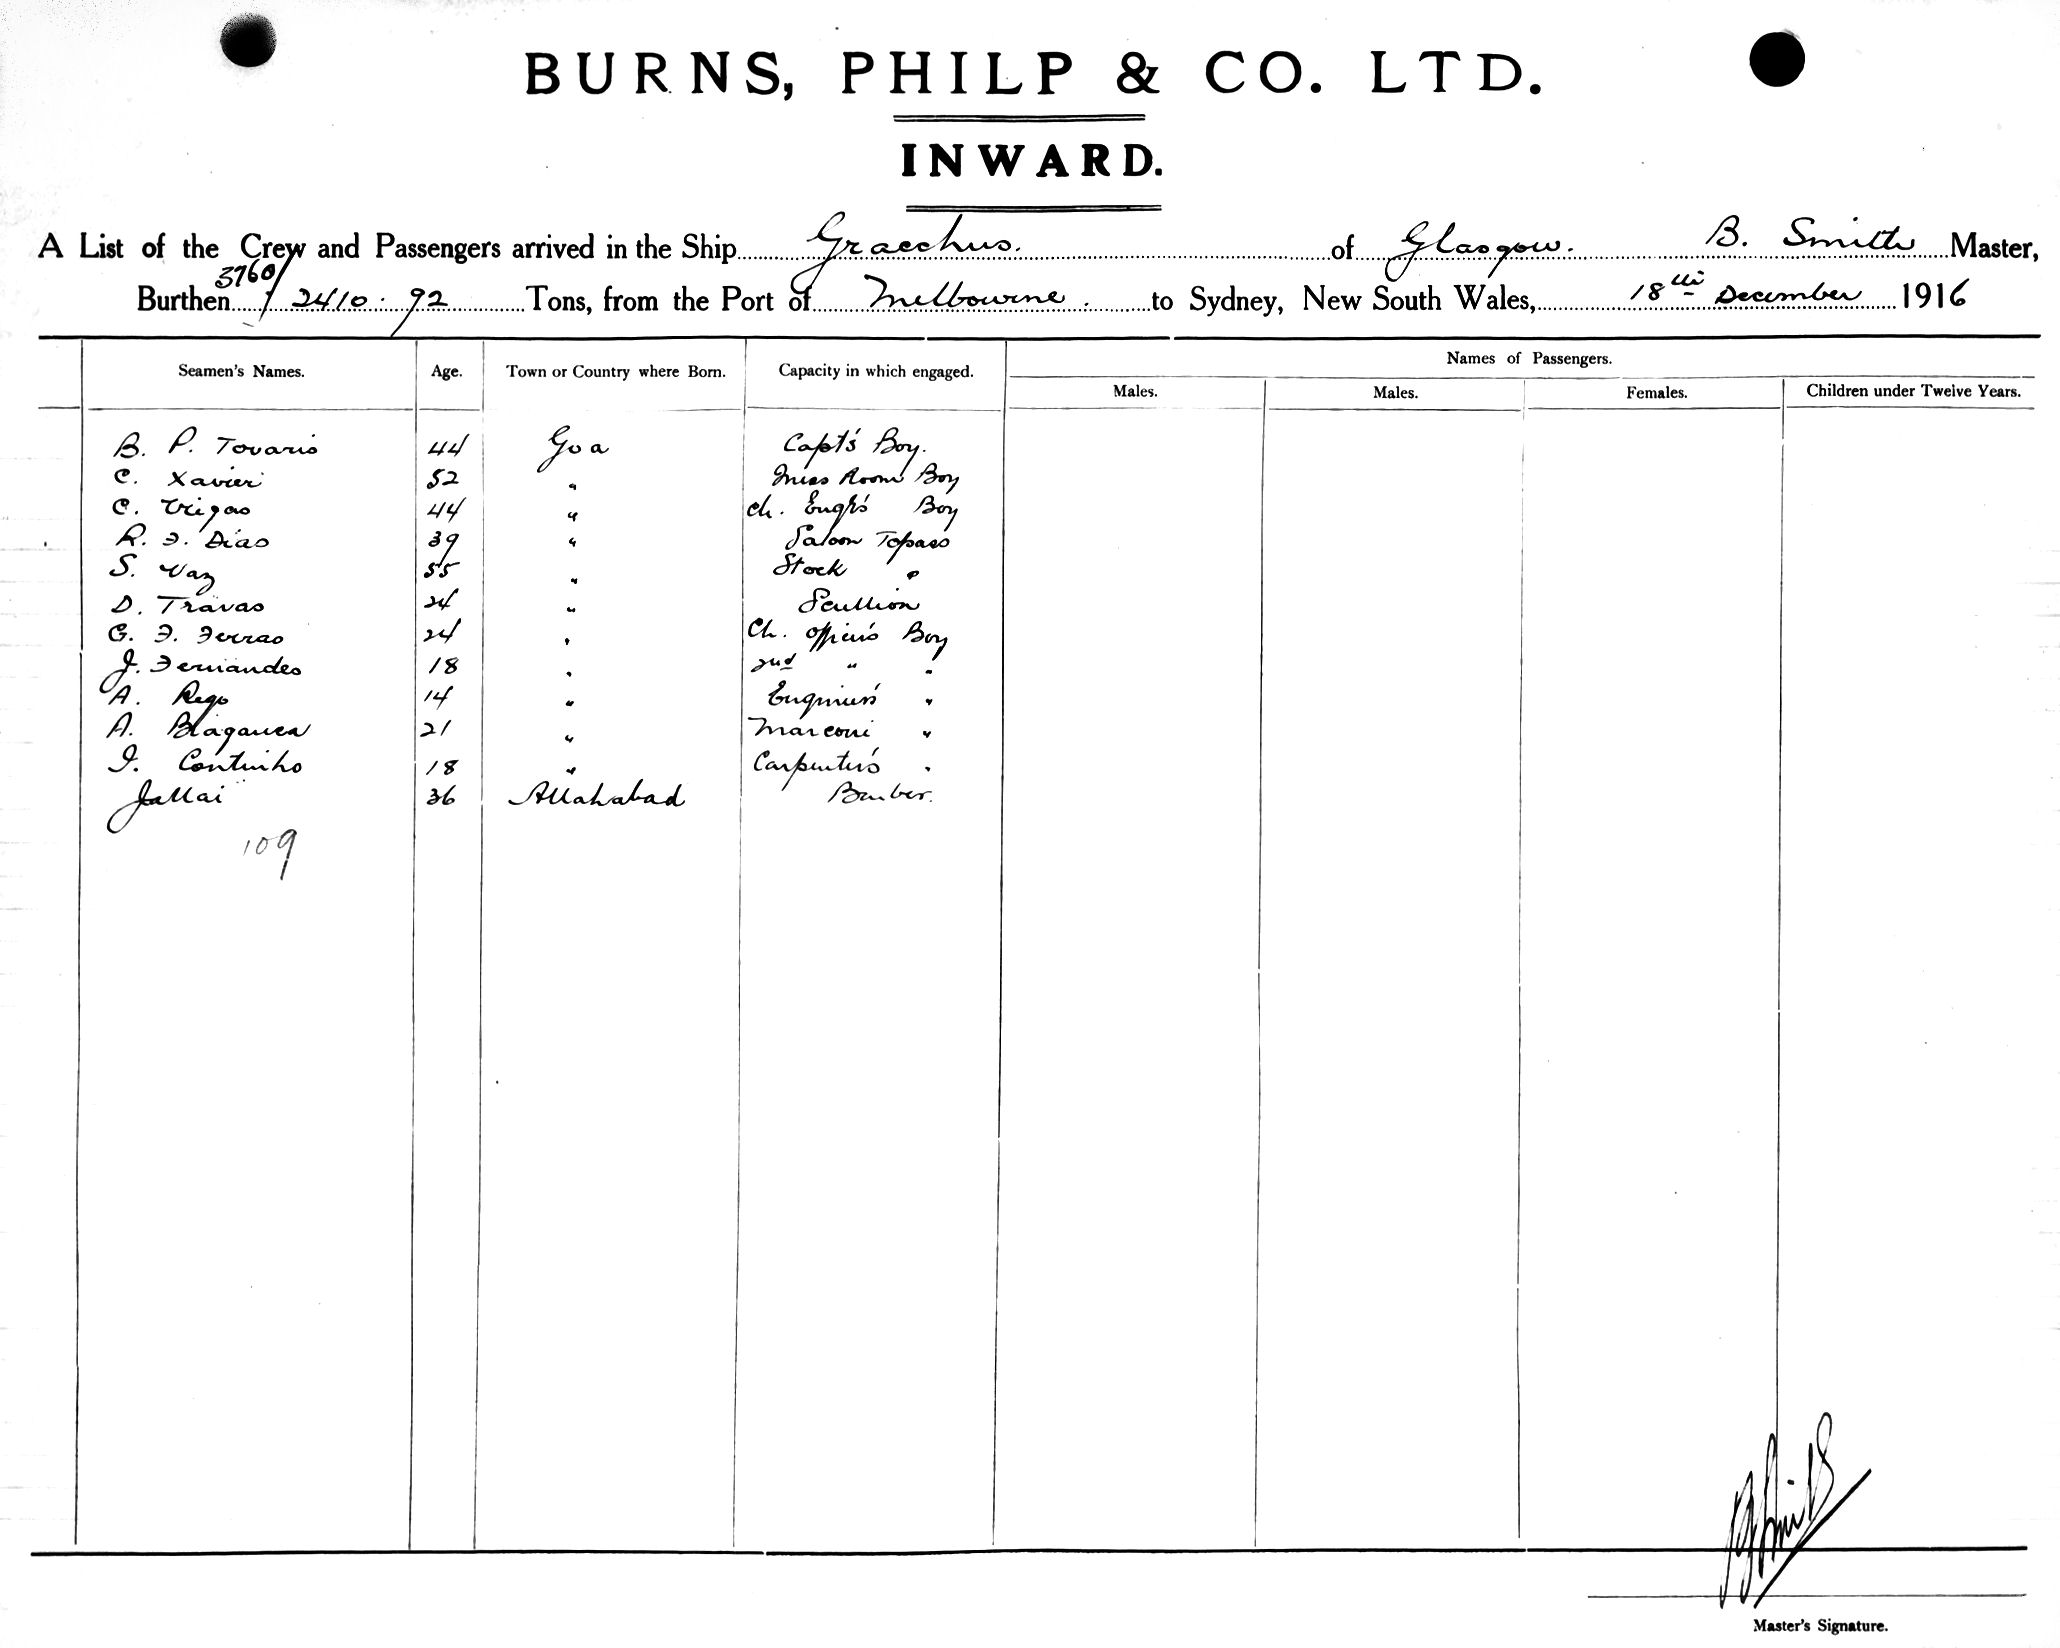 BURNS, PHILP & CO. LTD.
INWARD.
A List of the Crew and Passengers arrived in the Ship Gracchus. of Glasgow. B. Smith Master,
3760/
Burthen 2410.92 Tons, from the Port of Melbourne. to Sydney, New South Wales, 18th December 1916
Names of Passengers.
Seamen's Names. Age. Town or Country where Born. Capacity in which engaged. Males. Males. Females. Children under Twelve Years.
B. P. Tovaris 44 Goa Capt's Boy.
C. Xavier 52 " Mess Room Boy
C. Viegas 44 " Ch. Engr's Boy
R. F. Dias 39 " Saloon Topass
S. Vaz 55 " Stock "
D. Travas 24 " Scullion
G. F. Ferrao 24 " Ch. Officer's Boy
J. Fernandes 18 " 2nd " "
A. Rego 14 " Engineer's "
A. Braganca 21 " Marconi "
I. Continho 18 " Carpenter's "
Jallai 36 Allahabad Barber.
109
B Smith
Master's Signature.